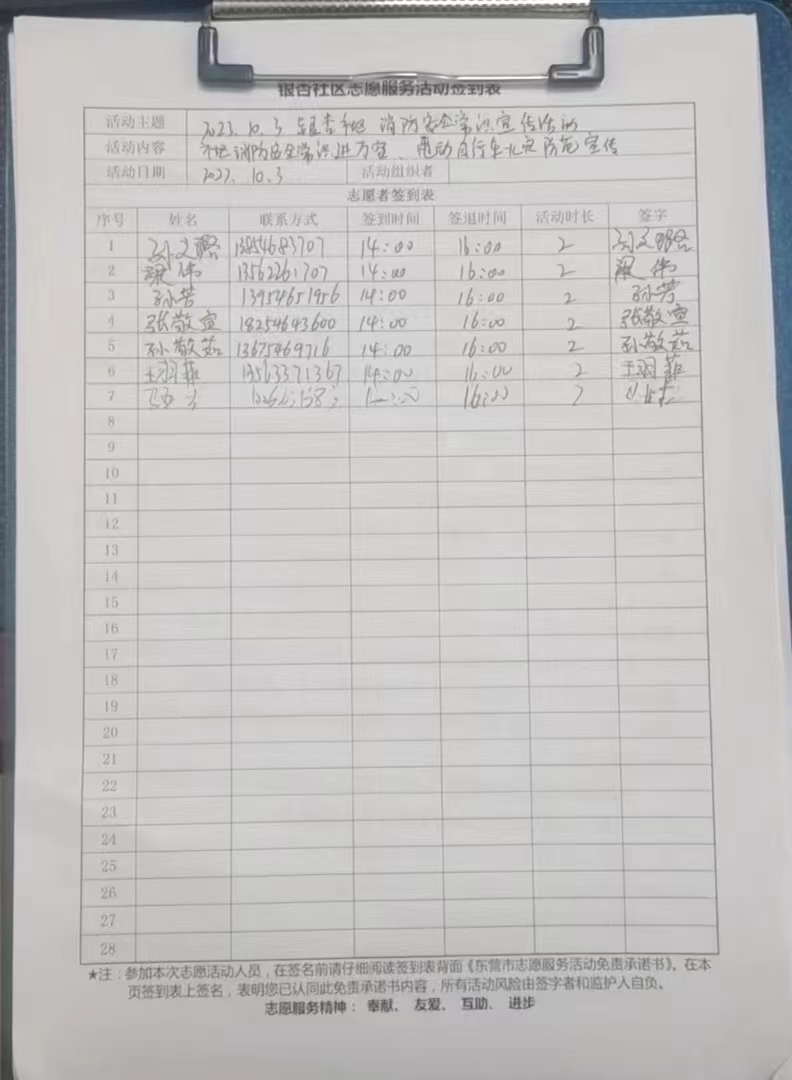 银杏社区志愿服务活动签到表
活动主题 2023.10.3 银杏社区 消防安全常识宣传活动
活动内容 社区消防安全常识进万家、电动自行车火灾防范宣传
活动日期 2023.10.3 活动组织者
志愿者签到表
序号 姓名 联系方式 签到时间 签退时间 活动时长 签字
1 13854683707 14:00 16:00 2
2 梁伟 13562261707 14:00 16:00 2 梁伟
3 孙芳 13954651956 14:00 16:00 2 孙芳
4 张敬宣 18254643600 14:00 16:00 2 张敬宣
5 孙敬茹 13675469716 14:00 16:00 2 孙敬茹
6 王羽菲 13563371367 14:00 16:00 2 王羽菲
7 16:00 2
8
9
10
11
12
13
14
15
16
17
18
19
20
21
22
23
24
25
26
27
28
★注：参加本次志愿活动人员，在签名前请仔细阅读签到表背面《东营市志愿服务活动免责承诺书》。在本
页签到表上签名，表明您已认同此免责承诺书内容，所有活动风险由签字者和监护人自负。
志愿服务精神： 奉献、 友爱、 互助、 进步